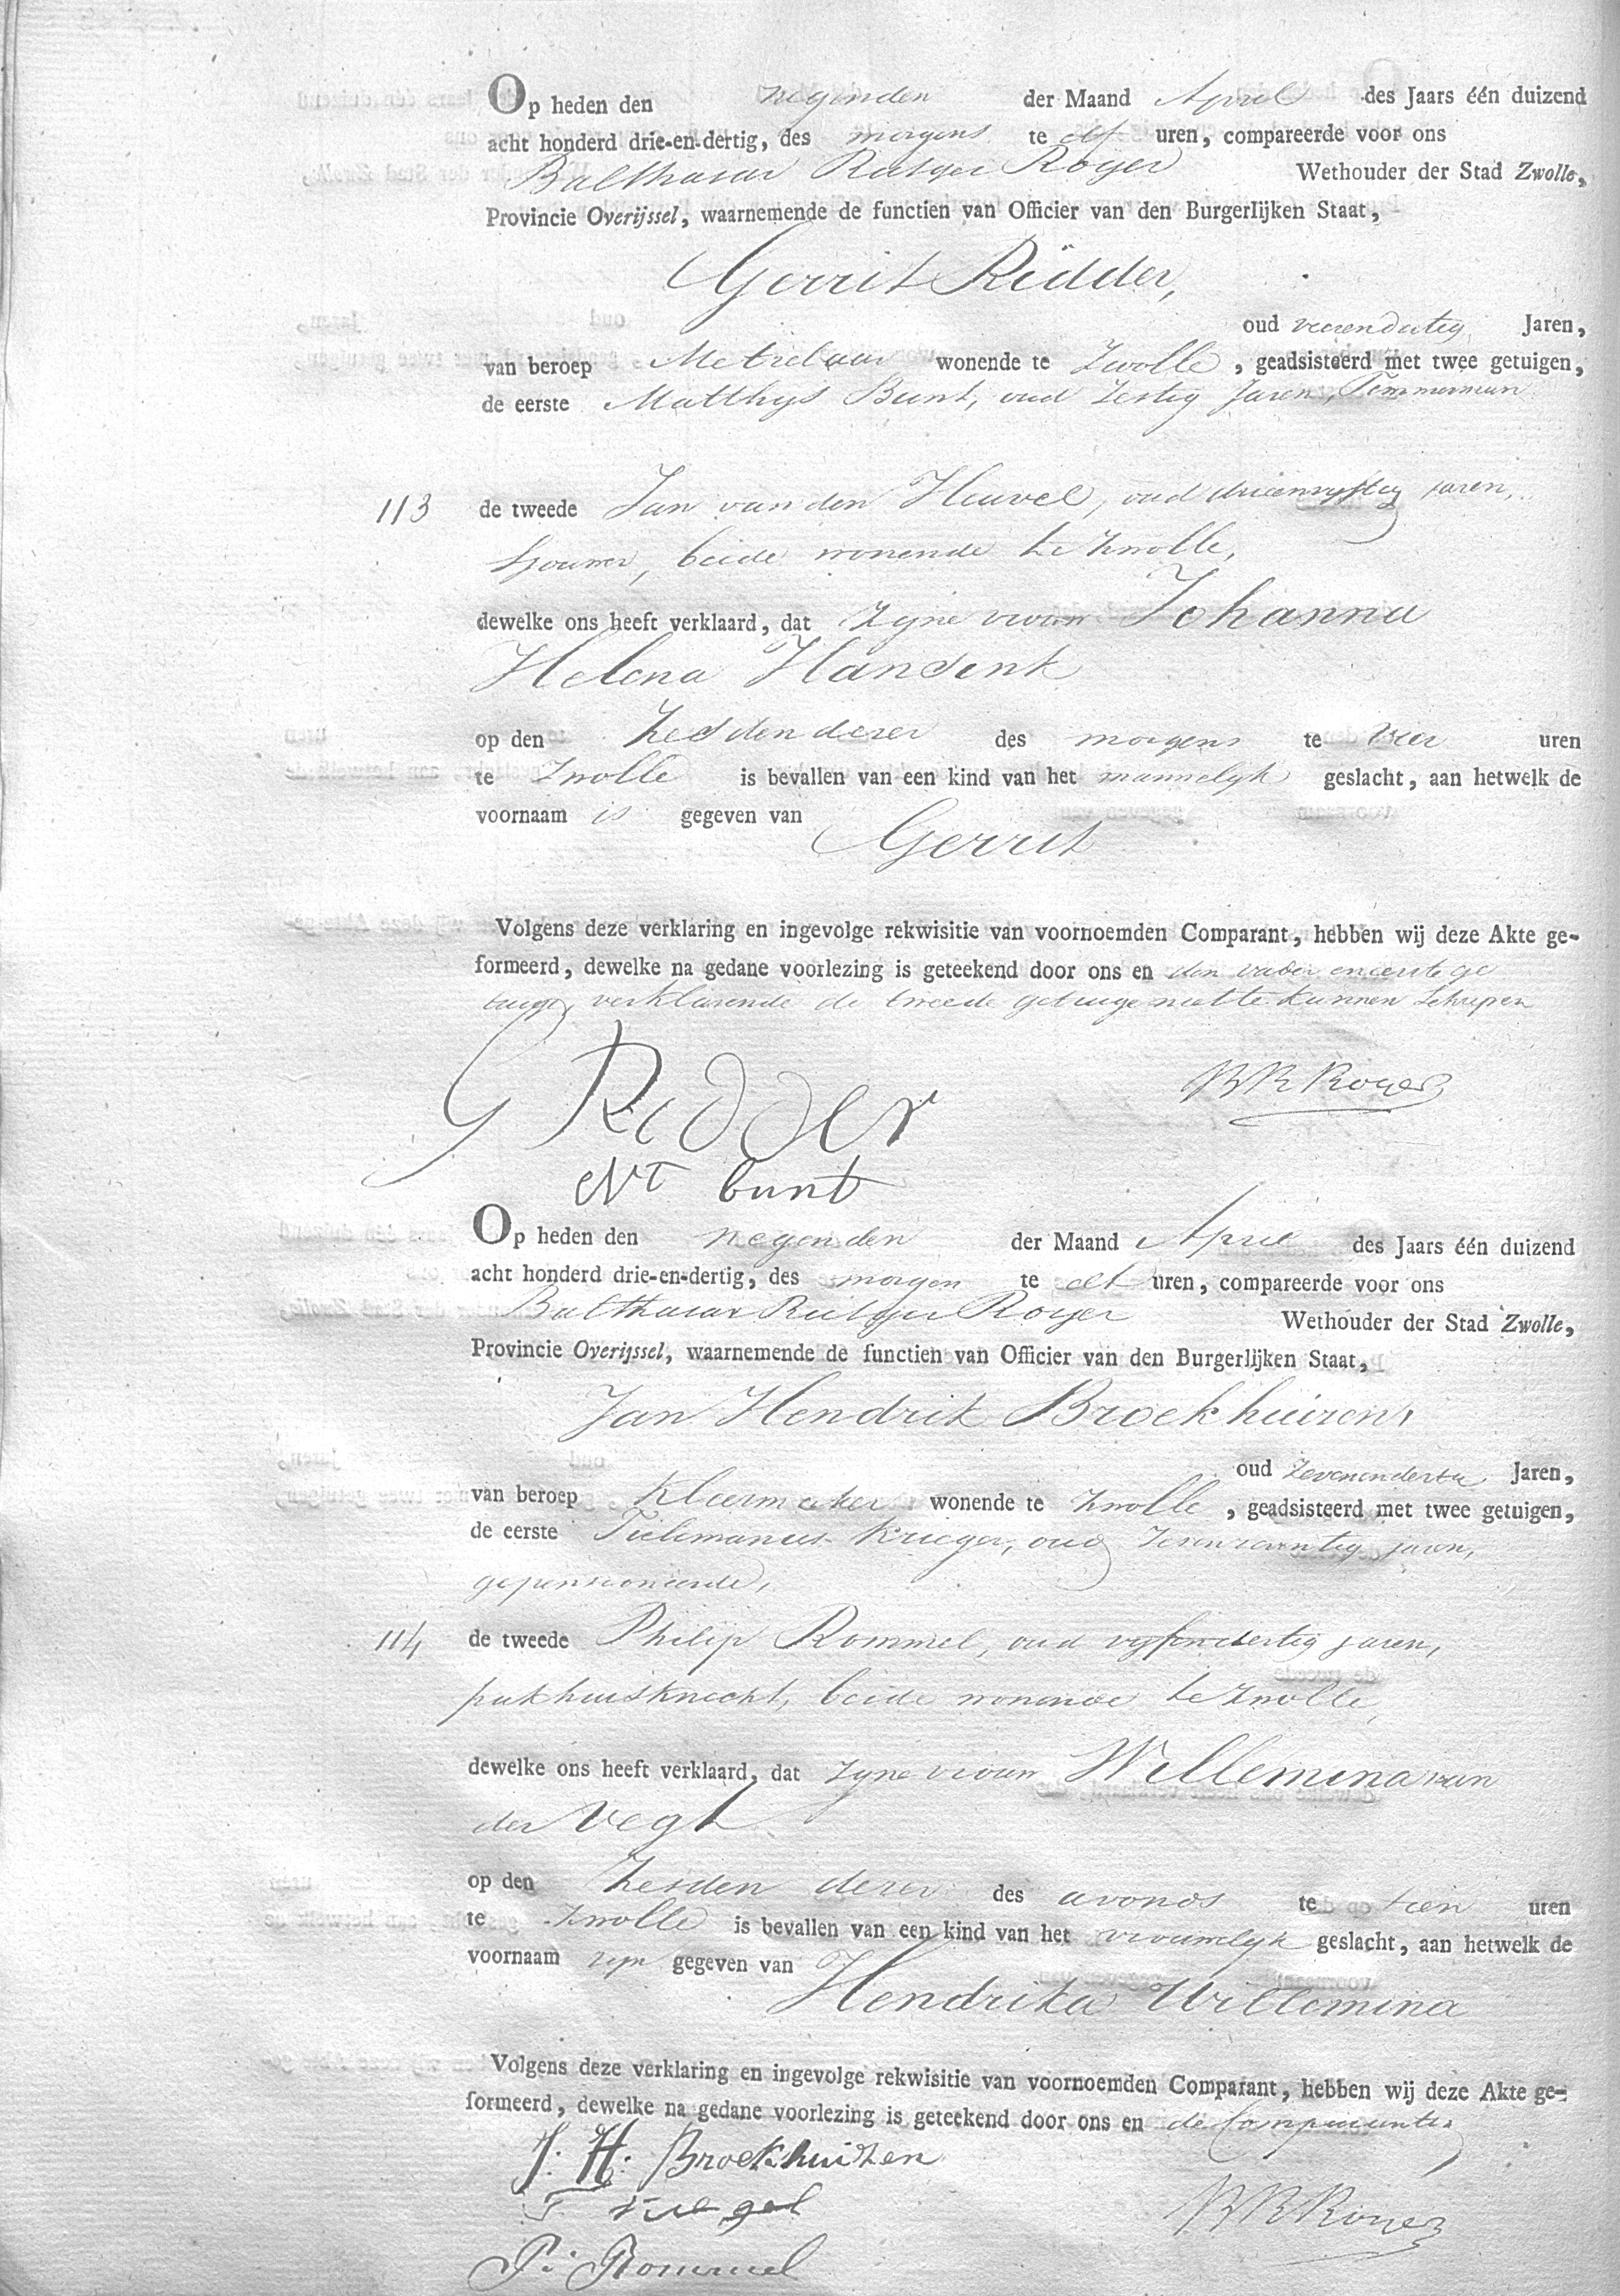 Op heden den negenden der Maand April des Jaars één duizend
acht honderd drie-en-dertig, des morgens te elf uren, compareerde voor ons
Balthasar Rutger Royer Wethouder der Stad Zwolle,
Provincie Overijssel, waarnemende de functien van Officier van den Burgerlijken Staat,
Gerrit Ridder,
oud vierendertig Jaren,
van beroep Metzelaar wonende te Zwolle, geadsisteerd met twee getuigen,
de eerste Matthys Bunt, oud Zestig Jaren, Timmerman
113 de tweede Jan van den Heuvel, oud drieenvyftig jaren,
beide wonende te Zwolle,
dewelke ons heeft verklaard, dat Zyne vrouw Johanna
Helena Handenk
op den Zesden dezer des morgens te vier uren
te Zwolle is bevallen van een kind van het mannelyk geslacht, aan hetwelk de
voornaam is gegeven van
Gerrit
Volgens deze verklaring en ingevolge rekwisitie van voornoemden Comparant, hebben wij deze Akte ge-
formeerd, dewelke na gedane voorlezing is geteekend door ons en den vader en eerste ge
tuige, verklarende de tweede getuige niet te kunnen Schryven
G Ridder BR Royer
MT bunt
Op heden den negenden der Maand April des Jaars één duizend
acht honderd drie-en-dertig, des morgen te elf uren, compareerde voor ons
Balthasar Rutger Royer Wethouder der Stad Zwolle,
Provincie Overijssel, waarnemende de functien van Officier van den Burgerlijken Staat,
Jan Hendrik Broekhuizen,
oud Zevenendertig Jaren,
van beroep Kleermaker wonende te Zwolle, geadsisteerd met twee getuigen,
de eerste Tielemanus Krieger, oud Zevenzeventig jaren,
gepensioneerde,
114 de tweede Philip Rommel, oud vyfendertig jaren,
pakhuisknecht, beide wonende te Zwolle,
dewelke ons heeft verklaard, dat Zyne vrouw Willemina van
der Vegt
op den Zesden dezer des avonds te tien uren
te Zwolle is bevallen van een kind van het vrouwelyk geslacht, aan hetwelk de
voornaam zyn gegeven van
Hendrika Willemina
Volgens deze verklaring en ingevolge rekwisitie van voornoemden Comparant, hebben wij deze Akte ge-
formeerd, dewelke na gedane voorlezing is geteekend door ons en de Comparanten
J. H. Broekhuizen
BR Royer
P. Rommel